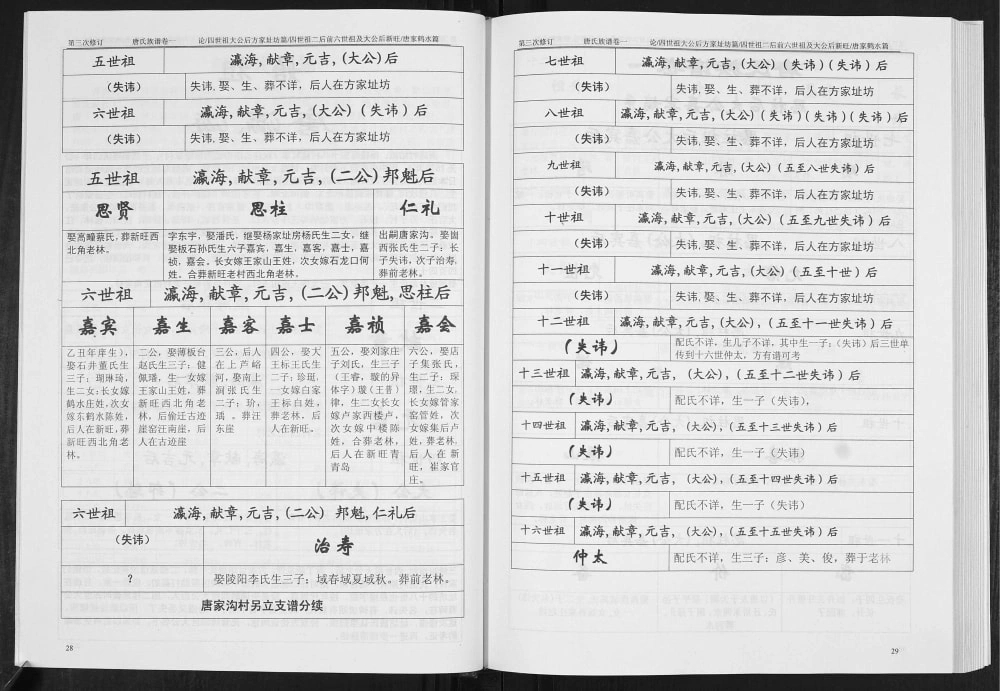 第三次修订 唐氏族谱卷一 论/四世祖大公后方家址坊篇/四世祖二后前六世祖及大公后新旺/唐家鹤水篇
五世祖 瀛海,献章,元吉,(大公)后
(失讳) 失讳,娶、生、葬不详，后人在方家址坊
六世祖 瀛海,献章,元吉,(大公)(失讳)后
(失讳) 失讳,娶、生、葬不详，后人在方家址坊
五世祖 瀛海,献章,元吉,(二公)邦魁后
思贤 思柱 仁礼
娶高疃蔡氏,葬新旺西
北角老林。
字东宇，娶潘氏，继娶杨家址房杨氏生二女，继
娶板石孙氏生六子嘉宾，嘉生，嘉客，嘉士，嘉
祯，嘉会。长女嫁王家山王姓，次女嫁石龙口何
姓。合葬新旺老村西北角老林。
出嗣唐家沟。娶崮
西张氏生二子：长
子失讳，次子治寿。
葬前老林。
六世祖 瀛海,献章,元吉,(二公)邦魁,思柱后
嘉宾 嘉生 嘉客 嘉士 嘉祯 嘉会
乙丑年庠生)，
娶石井董氏生
三子：瑚琳琦，
生二女，长女嫁
鹤水庄姓,次女
嫁东鹤水陈姓，
后人在新旺,葬
新旺西北角老
林。
二公，娶薄板台
赵氏生三子：健
佩璠，生一女嫁
王家山王姓，葬
新旺西北角老
林，后偷迁古迹
崖窑汪南崖，后
人在古迹崖
三公，后人
在上芦峪
河，娶南上
涧张氏生
二子：玠，
瑀 。葬汪
东崖
四公，娶大
王标王氏生
二子：珍珽，
一女嫁白家
王标白姓，
葬老林，后
人在新旺。
五公，娶刘家庄
子刘氏，生三子
（王睿，璇的异
体字）璎（王善）
律，生二女长女
嫁卢家西楼卢，
次女嫁中楼陈
姓，合葬老林，
后人在新旺青
青岛
六公，娶店
子集张氏，
生二子：琛
璟，生二女，
长女嫁管家
窑管姓，次
女嫁集后卢
姓，葬老林，
后人在新
旺，崔家官
庄。
六世祖 瀛海,献章,元吉,(二公) 邦魁,仁礼后
(失讳) 治寿
？ 娶陵阳李氏生三子；域春域夏域秋。葬前老林，
唐家沟村另立支谱分续
28
第三次修订 唐氏族谱卷一 论/四世祖大公后方家址坊篇/四世祖二后前六世祖及大公后新旺/唐家鹤水篇
七世祖 瀛海,献章,元吉,(大公)(失讳)(失讳)后
(失讳) 失讳,娶、生、葬不详，后人在方家址坊
八世祖 瀛海,献章,元吉,(大公)(失讳)(失讳)(失讳)后
(失讳) 失讳,娶、生、葬不详，后人在方家址坊
九世祖 瀛海,献章,元吉,(大公)(五至八世失讳)后
(失讳) 失讳,娶、生、葬不详，后人在方家址坊
十世祖 瀛海,献章,元吉,(大公)(五至九世失讳)后
(失讳) 失讳,娶、生、葬不详，后人在方家址坊
十一世祖 瀛海,献章,元吉,(大公)(五至十世)后
(失讳) 失讳,娶、生、葬不详，后人在方家址坊
十二世祖 瀛海,献章,元吉,(大公),(五至十一世失讳)后
(失讳) 配氏不详，生几子不详，其中生一子；(失讳)后三世单
传到十六世仲太，方有谱可考
十三世祖 瀛海,献章,元吉,(大公),(五至十二世失讳)后
(失讳) 配氏不详，生一子（失讳），
十四世祖 瀛海,献章,元吉,(大公),(五至十三世失讳)后
(失讳) 配氏不详，生一子（失讳）
十五世祖 瀛海,献章,元吉,(大公),(五至十四世失讳)后
(失讳) 配氏不详，生一子（失讳）
十六世祖 瀛海,献章,元吉,(大公),(五至十五世失讳)后
仲太 配氏不详，生三子：彦、美、俊，葬于老林
29